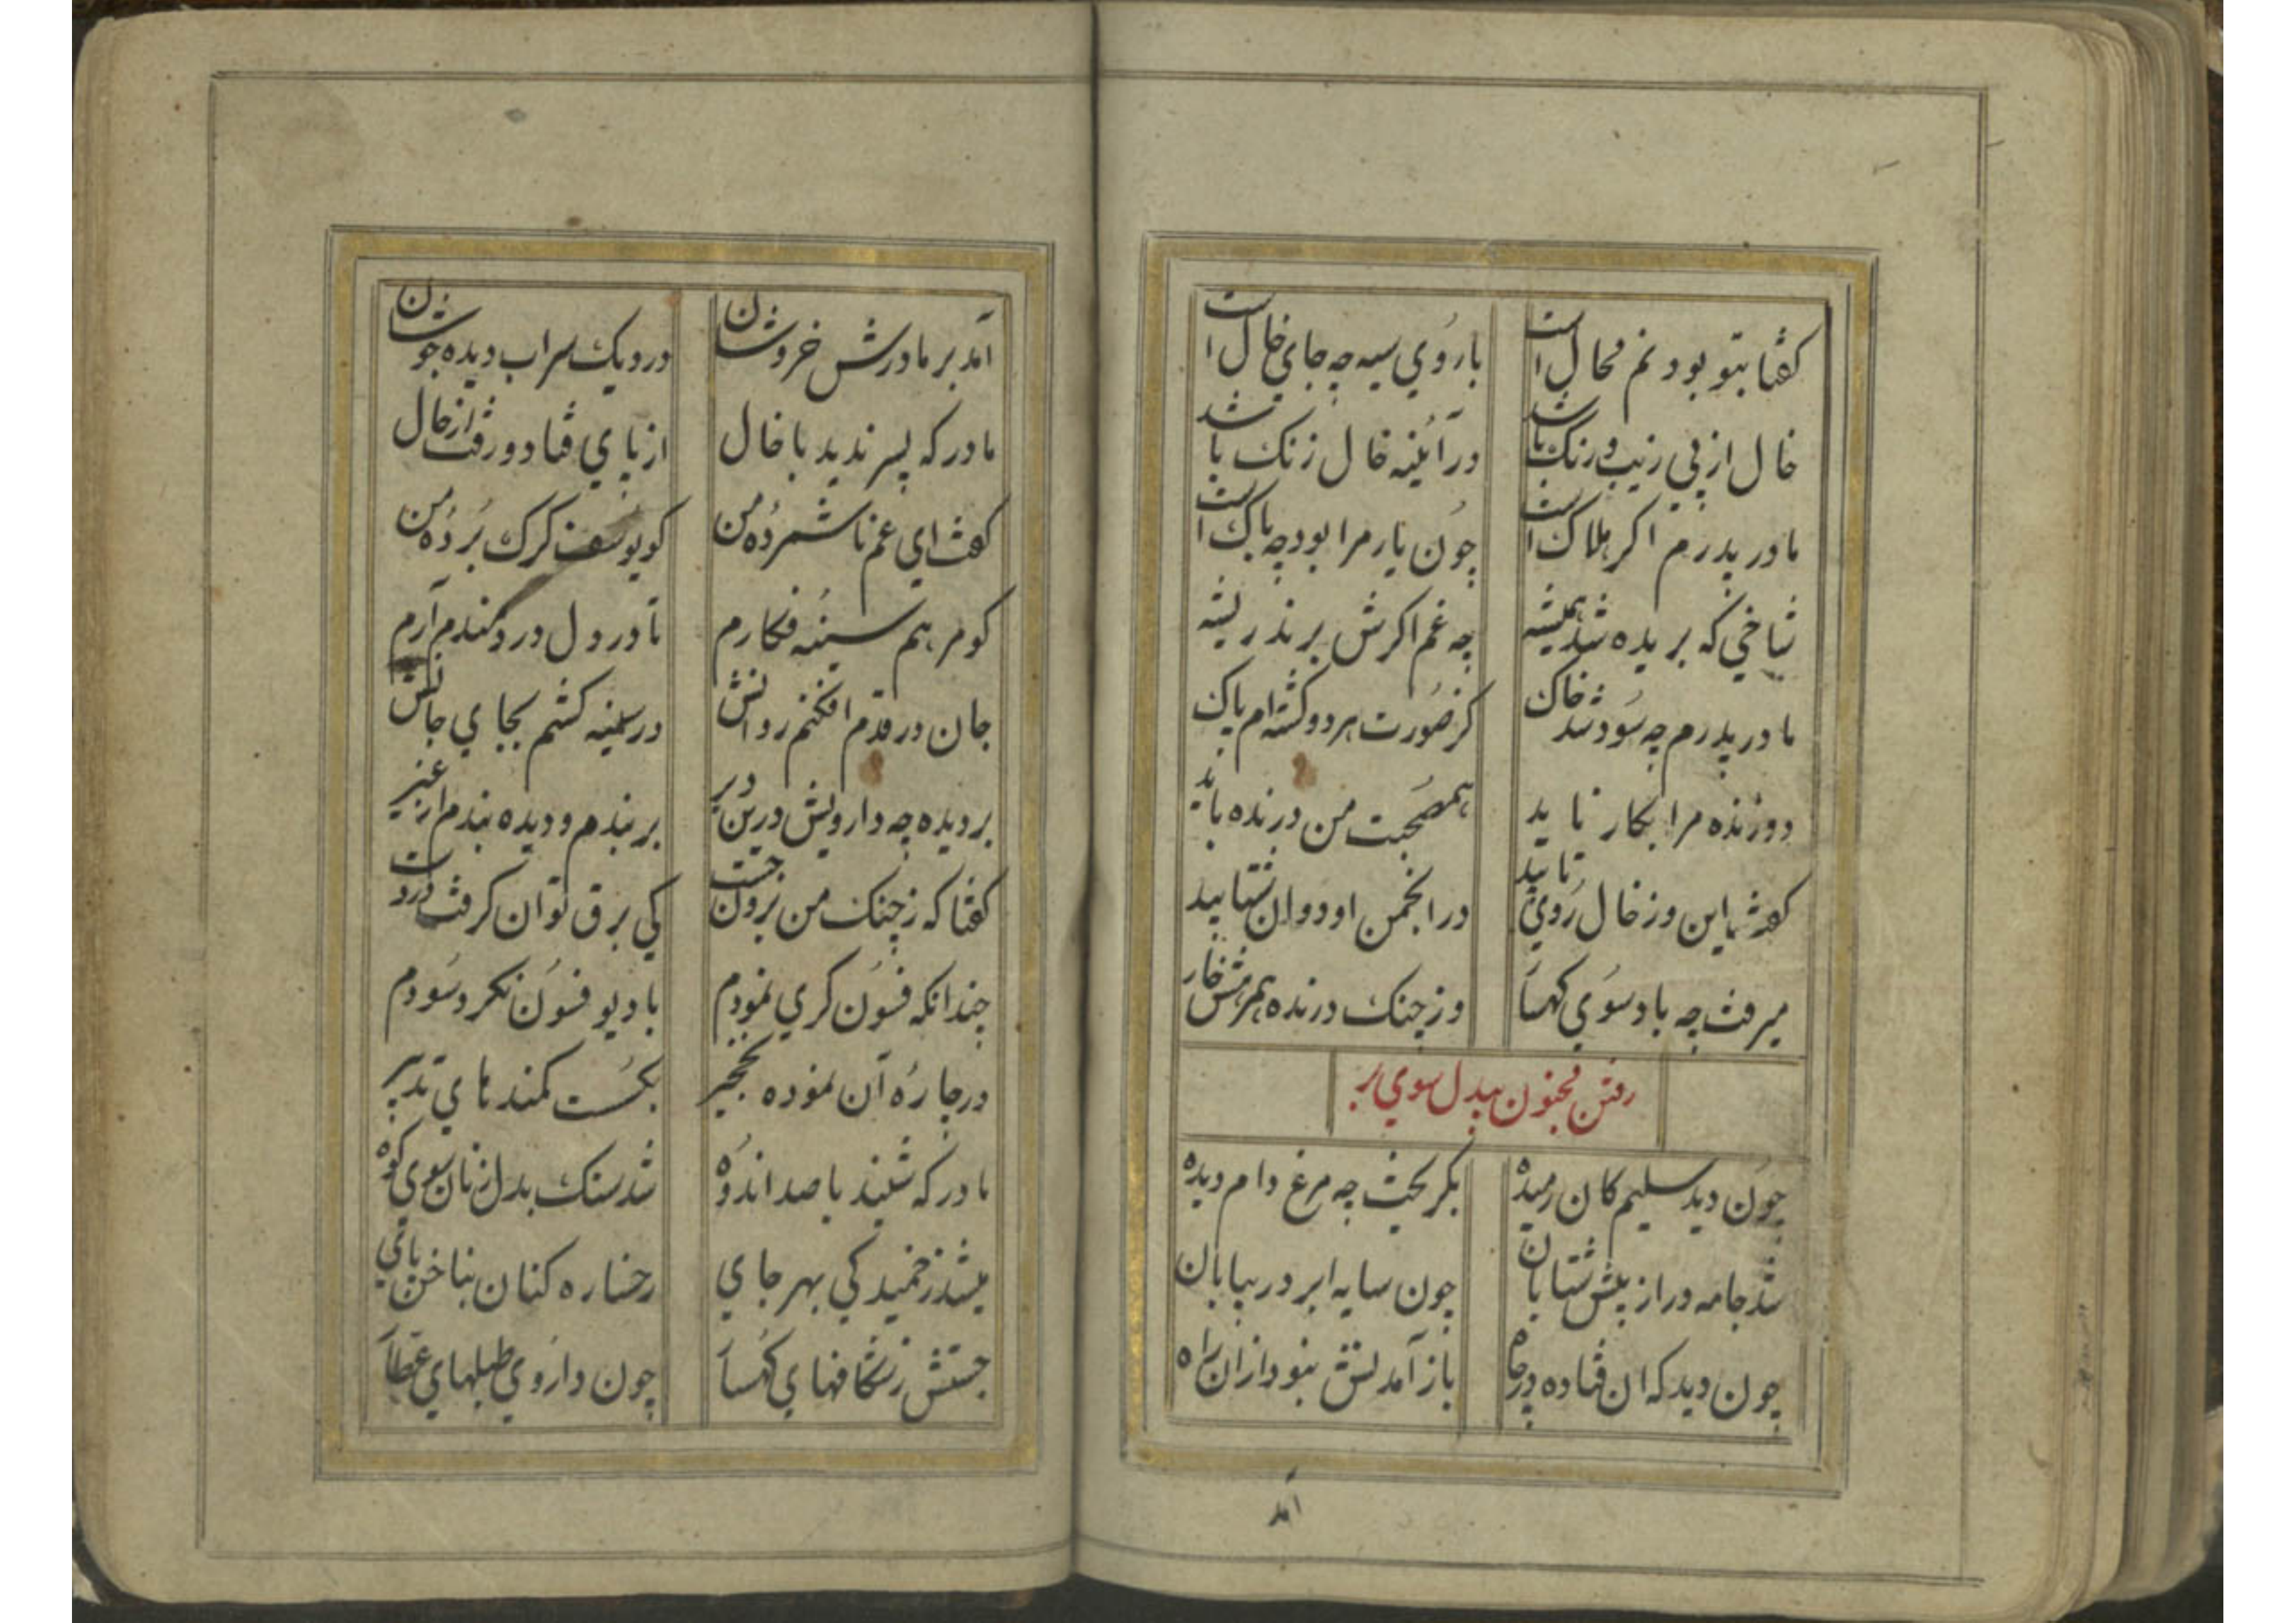 گفتا بتو بودنم محال است با روی سیه چه جای خال است
خال از پی زیب و رنگ باشد در آئینه خال زنگ باشد
مادر پدرم اگر هلاک است چون یار مرا بود چه باک است
شاخی که بریده شد همیشه چه غم اگرش برند ریشه
مادر پدرم چه سود شد خاک کز صورت هر دو گشته‌ام پاک
دوزنده مرا بکار ناید همصحبت من درنده باید
گفت این و ز خال روی تابید در انجمن او دوان شتابید
میرفت چه باد سوی کهسار وز چنک درنده همرهش خار
رفتن مجنون بیدل سوی بر
چون دید سلیم کان رمیده بگریخت چه مرغ دام دیده
شد جامه در از پیش شتابان چون سایه ابر در بیابان
چون دید که ان فتاده در چاه باز آمدنش نبود ازان راه
آمد
آمد بر مادرش خروشان در دیک سراب دیده جوشان
مادر که پسر ندید با خال از پای فتاد و رفت از حال
گفت ای غم ناشمرده من کو یوسف کرک برده من
کو مرهم سینه فکارم تا در دل دردمندم آرم
جان در قدم افکنم روانش در سینه کشم بجای جانش
بر دیده چه دارویش درین دیر بر بندم و دیده بندم از غیر
گفتا که ز چنک من برون جست کی برق توان گرفت در دست
چندانکه فسون کری نمودم با دیو فسون نکرد سودم
در چاره آن نموده نخجیر بکسست کمندهای تدبیر
مادر که شنید با صد اندوه شد سنک بدل زنان سوی کوه
میشد ز خمیدکی بهر جای رخساره کنان بناخن پای
جستش ز شکافهای کهسار چون داروی طبلهای عطار